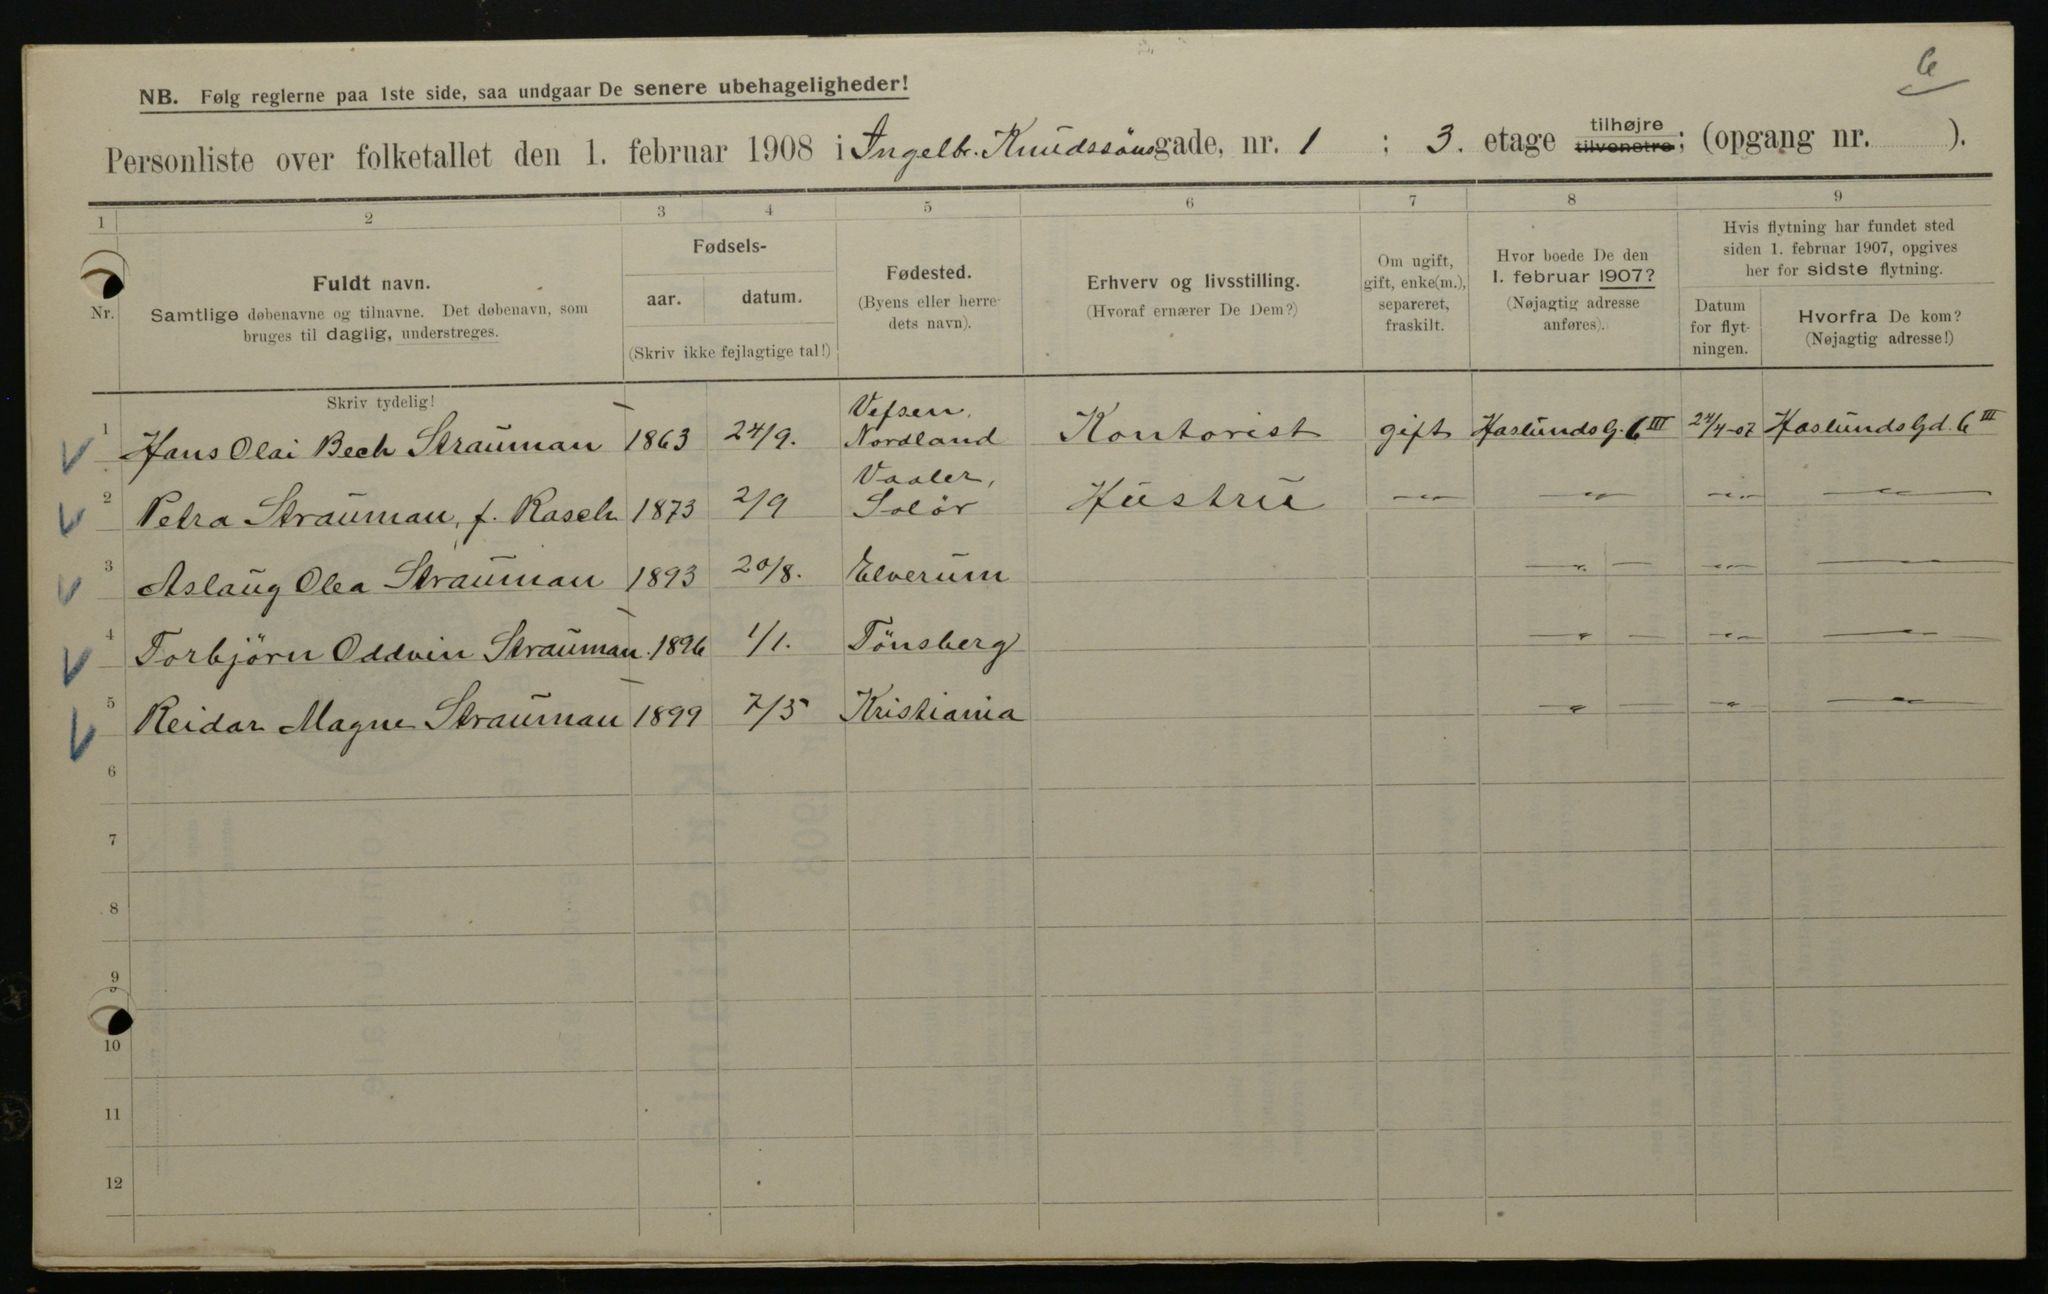 6
NB. Følg reglerne paa 1ste side, saa undgaar De senere ubehageligheder!
Personliste over folketallet den 1. februar 1908 i Ingelbr. Knudssöns gade, nr. 1 ; 3. etage tilhøjre tilvenstre; (opgang nr. ).
1 2 3 4 5 6 7 8 9
Nr.
Fuldt navn.
Samtlige døbenavne og tilnavne. Det døbenavn, som
bruges til daglig, understreges.
Skriv tydelig!
Fødsels-
aar. datum.
(Skriv ikke fejlagtige tal!)
Fødested.
(Byens eller herre-
dets navn).
Erhverv og livsstilling.
(Hvoraf ernærer De Dem?)
Om ugift,
gift, enke(m.),
separeret,
fraskilt.
Hvor boede De den
1. februar 1907?
(Nøjagtig adresse
anføres).
Hvis flytning har fundet sted
siden 1. februar 1907, opgives
her for sidste flytning.
Datum
for flyt-
ningen.
Hvorfra De kom?
(Nøjagtig adresse!)
1 Hans Olai Bech Strauman 1863 24/9. Vefsen, Nordland Kontorist gift Haslunds G. 6 III 24/4-07 Haslunds Gd. 6 III
2 Petra Strauman, f. Rasch 1873 2/9 Vaaler, Solör Hustru —"— —"— —"— —"—
3 Aslaug Olea Strauman 1893 20/8. Elverum —"— —"— —"—
4 Torbjörn Oddvin Strauman. 1896 1/1. Tönsberg —"— —"— —"—
5 Reidar Magne Strauman 1899 7/5 Kristiania —"— —"— —"—
6
7
8
9
10
11
12